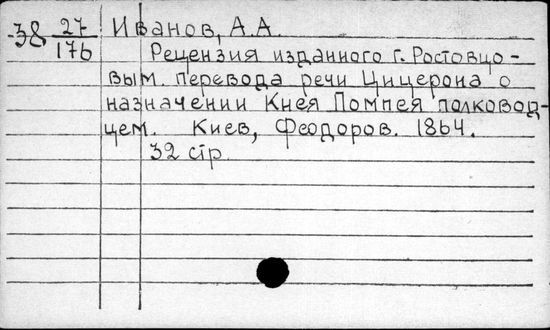 38 27/176 Иванов, А.А.
Рецензия изданного г. Ростовцо-
вым перевода речи Цицерона о
назначении Кнея Помпея полковод-
цем. Киев, Феодоров. 1864.
32 стр.